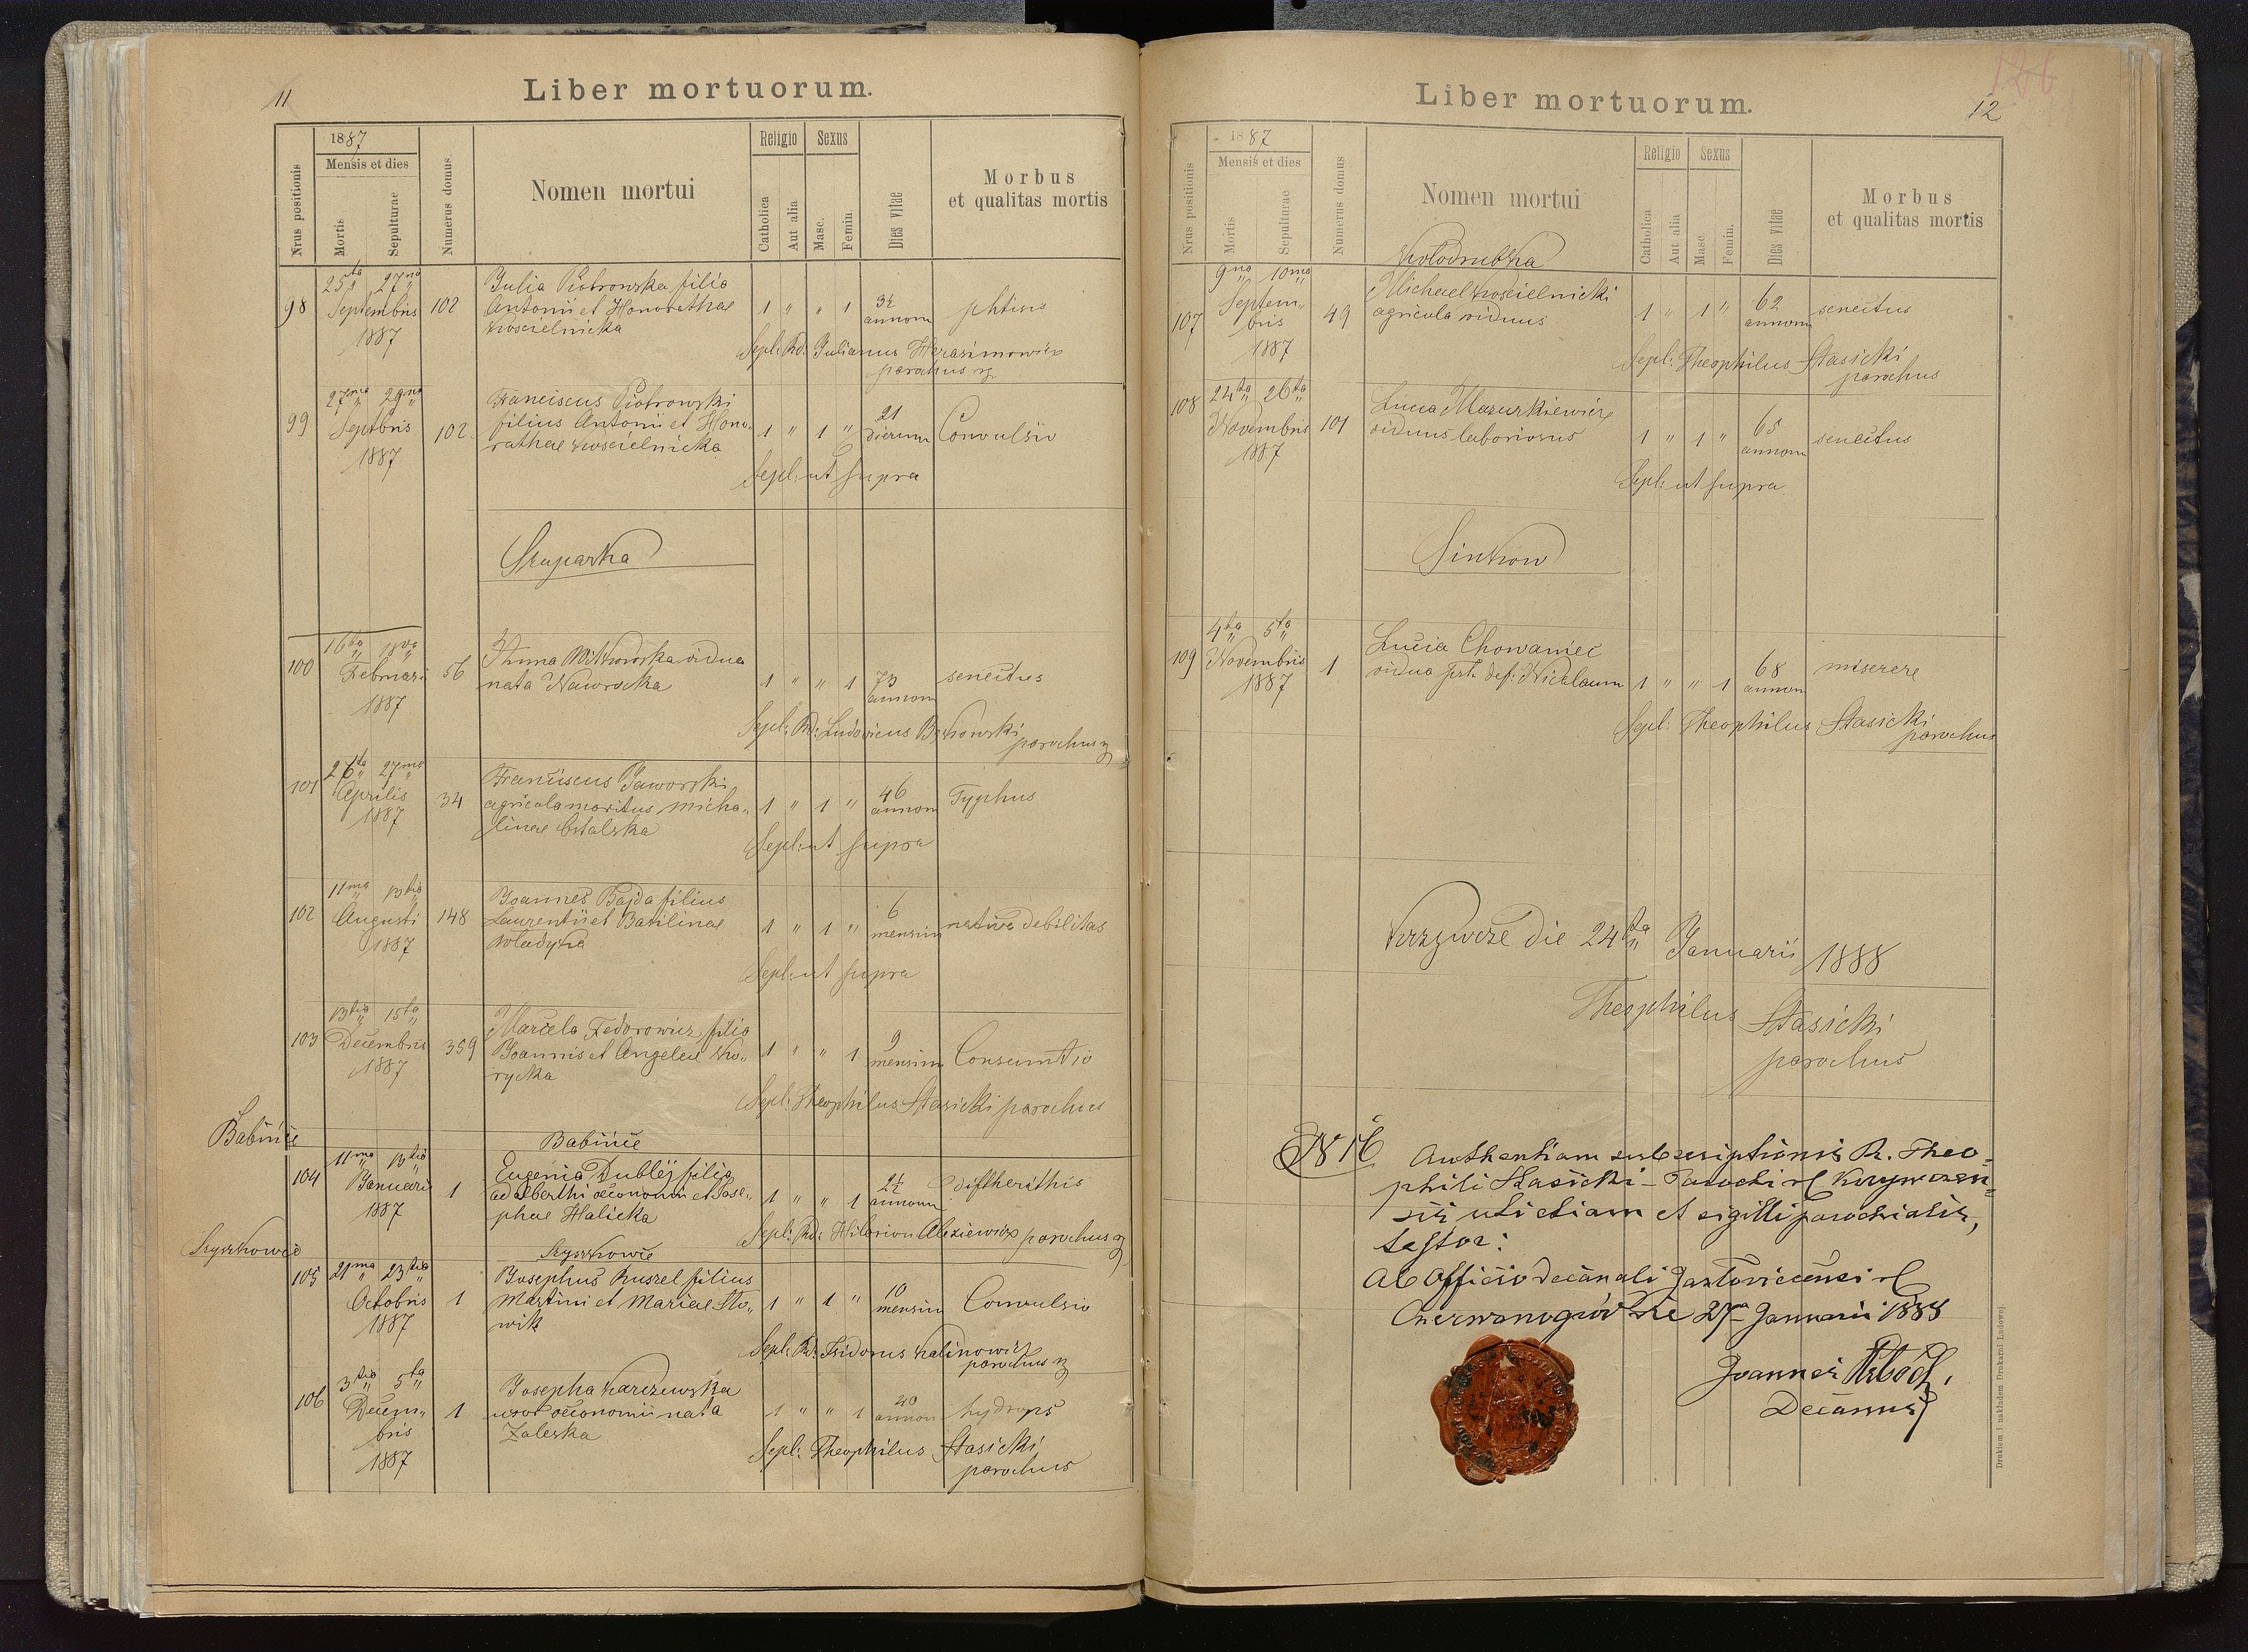 11
Liber mortuorum.
Nrus positionis
1887
Mensis et dies
Mortis
Sepulturae
Numerus domus.
Nomen mortui
Religio
Catholica
Aut alia
Sexus
Masc.
Femin.
Dies vitae
Morbus
et qualitas mortis
98
25ta 27ma
Septembris
1887
102
Julia Piotrowska filia
Antonii et Honorathae
Kościelnicka
1 " " 1
3½
annorum
phtisis
Sepl: Rd: Julianus Herasimowicz
parochus
99
27ma 29na
Septbris
1887
102
Franciscus Piotrowski
filius Antonii et Hono-
rathae Kościelnicka
1 " 1 "
21
dierum
Convulsio
Sepl: ut supra
Szuparka
100
16ta 18va
Februari
1887
56
Anna Witkowska vidua
nata Nawrocka
1 " " 1
73
annorum
senectus
Sepl: Rd: Ludovicus
parochus
101
26ta 27ma
Aprilis
1887
34
Franciscus Jaworski
agricola maritus Micha-
linae
1 " 1 "
46
annorum
Typhus
Sepl: ut supra
102
11ma 13tia
Augusti
1887
148
Joannes Bajda filius
Laurentii et Basilinae
Władyka
1 " 1 "
6
mensium
nativa debilitas
Sepl: ut supra
103
13tia 15ta
Decembris
1887
359
Marcela Fedorowicz filia
Joannis et Angelae Ko-
rycka
1 " " 1
9
mensium
Consumtio
Sepl: Theophilus Stasicki parochus
Babińce
Babińce
104
11ma 13tia
Januarii
1887
1
Eugenia Dubléj filia
Adalberthi oeconomi et Jose-
phae Halicka
1 " " 1
2½
annorum
diftherithis
Sepl: Rd: Hilarion Alexiewicz parochus
Szyszkowce
Szyszkowce
105
21ma 23tia
Octobris
1887
1
Josephus Kuszel filius
Martini et Mariae Sło-
wik
1 " 1 "
10
mensium
Convulsio
Sepl: Rd: Isidorus Kalinowicz
parochus
106
3tia 5ta
Decem-
bris
1887
1
Josepha Karczewska
uxor oeconomii nata
Zaleska
1 " " 1
40
annorum
hydrops
Sepl: Theophilus Stasicki
parochus
126
12
Liber mortuorum.
Nrus positionis
1887
Mensis et dies
Mortis
Sepulturae
Numerus domus
Nomen mortui
Religio
Catholica
Aut alia
Sexus
Masc.
Femin.
Dies vitae
Morbus
et qualitas mortis
Kołodrubka
107
9na 10ma
Septem-
bris
1887
49
Michael Kościelnicki
agricola viduus
1 " 1 "
62
annorum
senectus
Sepl: Theophilus Stasicki
parochus
108
24ta 26ta
Novembris
1887
101
Lucas Mazurkiewicz
viduus laboriosus
1 " 1 "
65
annorum
senectus
Sepl: ut supra
Sinkow
109
4ta 5ta
Novembris
1887
1
Lucia Chowaniec
vidua post def: Nicolaum
1 " " 1
68
annorum
miserere
Sepl: Theophilus Stasicki
parochus
Krzywcze die 24ta Januarii 1888
Theophilus Stasicki
parochus
N 16
Authentiam subscriptionis R. Theo-
phili Stasicki - Parochi rl Krzywczen-
sis uti etiam et sigilli parochialis,
testor:
Ab Officio decanali Jazłoviecensi rl
Czerwonogród die 27a Januarii 1888
Joannes
Decanus
Drukiem i nakładem Drukarni Ludowej.